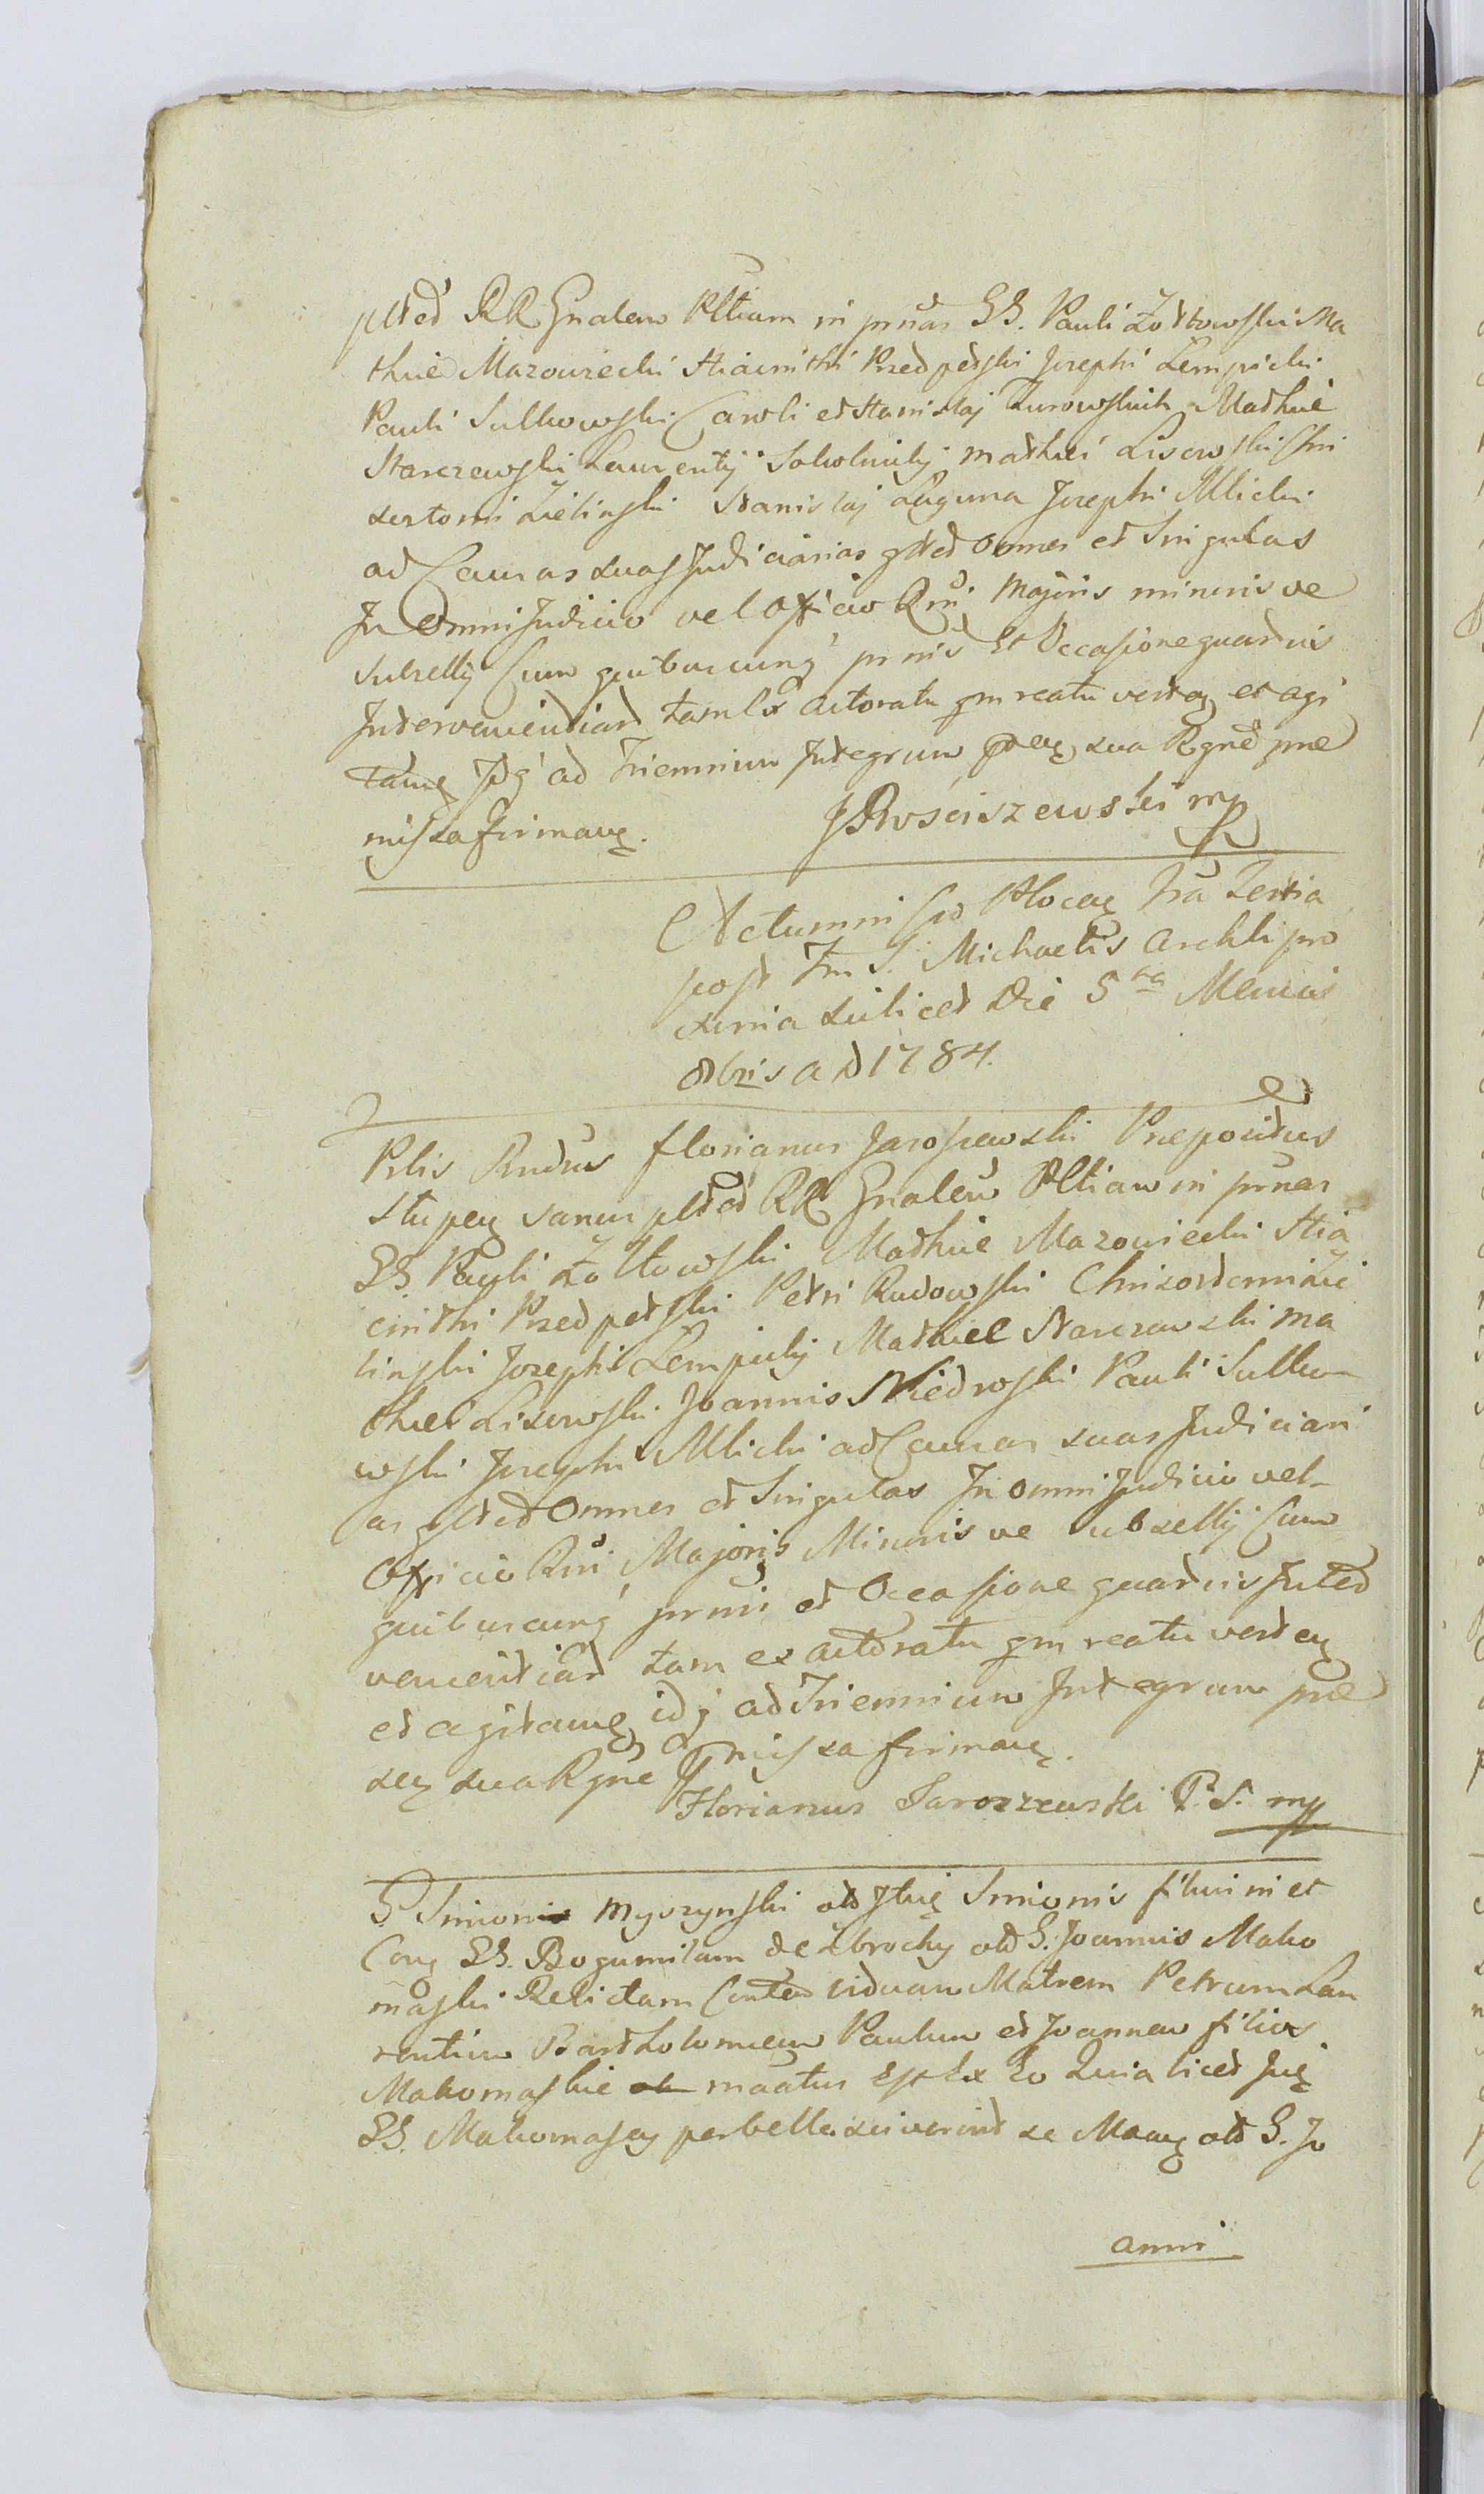 plted RR Gnalem Pltiam in prnas GG. Pauli Zołtowski Ma
thiæ Mazowiecki Hiacinthi Przedpełski Josephi Lempicki
Pauli Sulkowski Caroli et Stanislaj Zurowskich Mathiæ
Starczewski Laurentij Sokolnicky Mathei Lisowski Chri
sostomi Zielinski Stanislaj Laguna Josephi Mlicki
ad Causas suas Judiciarias glted omnes et Singulas
In Omni Judicio vel Officio Rni Majoris minoris ve
Subsellij Cum quibuscunq prnis Et Occasione quarvis
Intervenientiar tam Ex actoratu qm reatu verten et agi
tanę Idq ad Triennium Integrum sua Rgne præ
missa firmanę.
JRościszewski mp
Actum in Plocen Fra Tertia
post Fm S. Michaelis Archli pro
xima scilicet Die 5ta Mensis
8bris A D 1784.
Plis Rndus Florianus Jaroszewski Præpositus
Stupen sanus plted RR Gnalem Pltiam in prnas
GG. Pauli Zołtowski Mathiæ Mazowiecki Hia
cinthi Przedpełski Petri Rudowski Chrisostomi Zie
linski Josephi Lempicky Mathiæ Starczewski Ma
thei Lisowski Joannis Niedroski Pauli Sulko
wski Josephi Mlicki ad Causas suas Judiciari
as glted Omnes et Singulas In omni Judicio vel
Officio Rni Majoris Minoris ve Subsellij Cum
quibuscunq prnis et Occasione quarvis Inted
venientiar tam ex actoratu qm reatu verten
et agitanę idq ad Triennium Integrum præ
sen sua Rgne missa firmanę.
Florianus Jaroszewski P. S. mp
G. Simonis Myszynski old Simonis filius in et
Con GG. Bogumilam de Zbrochy old G. Joannis Mako
maski Relictam viduam Matrem Petrum Lau
rentium Bartholomeum Paulum et Joannem filios
Makomaskie maatus Est Ex Eo Quia licet
GG. Makomascy perbelle sciverint se old G. Jo
anni